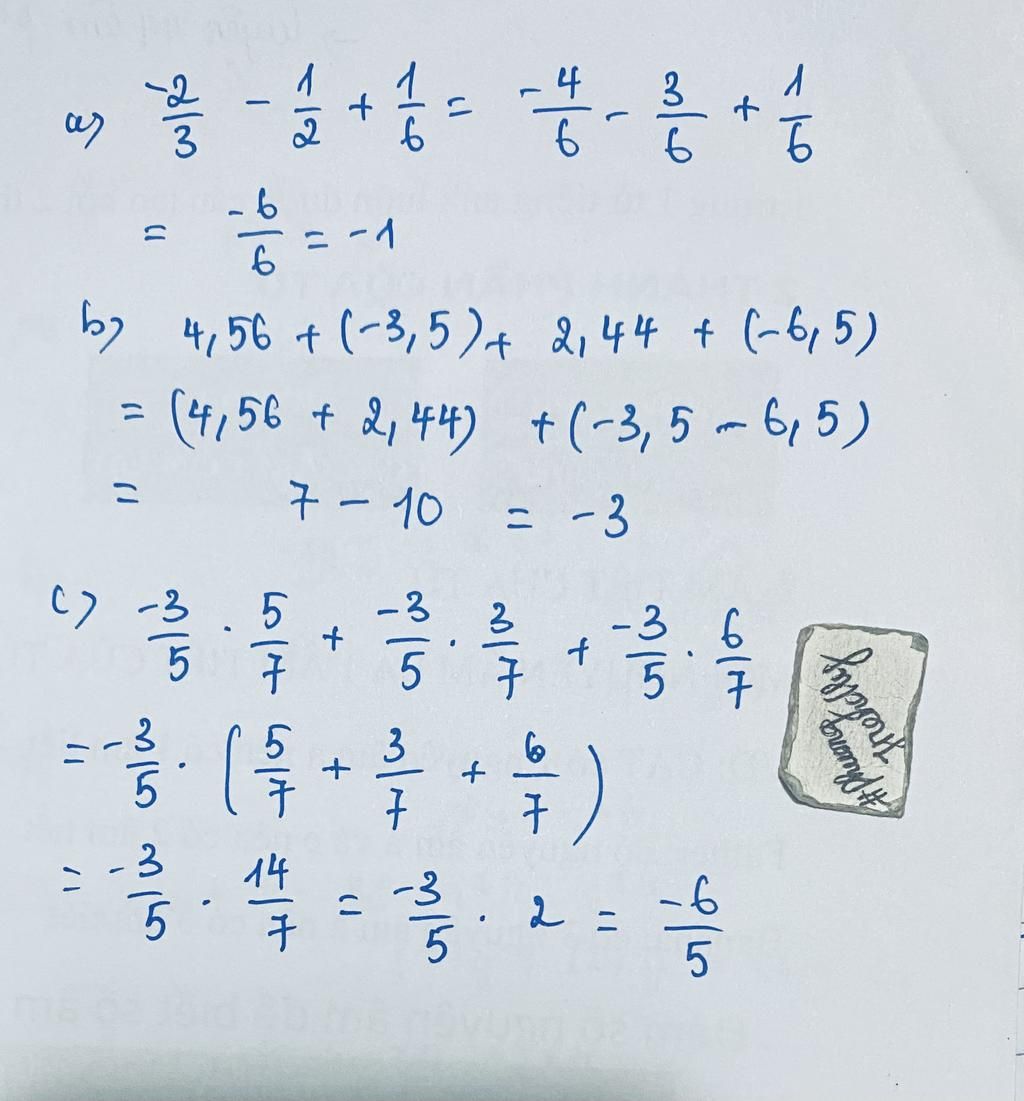 a) -2/3 - 1/2 + 1/6 = -4/6 - 3/6 + 1/6
= -6/6 = -1
b) 4,56 + (-3,5) + 2,44 + (-6,5)
= (4,56 + 2,44) + (-3,5 - 6,5)
= 7 - 10 = -3
c) -3/5 . 5/7 + -3/5 . 3/7 + -3/5 . 6/7
= -3/5 . (5/7 + 3/7 + 6/7)
= -3/5 . 14/7 = -3/5 . 2 = -6/5
#phuong